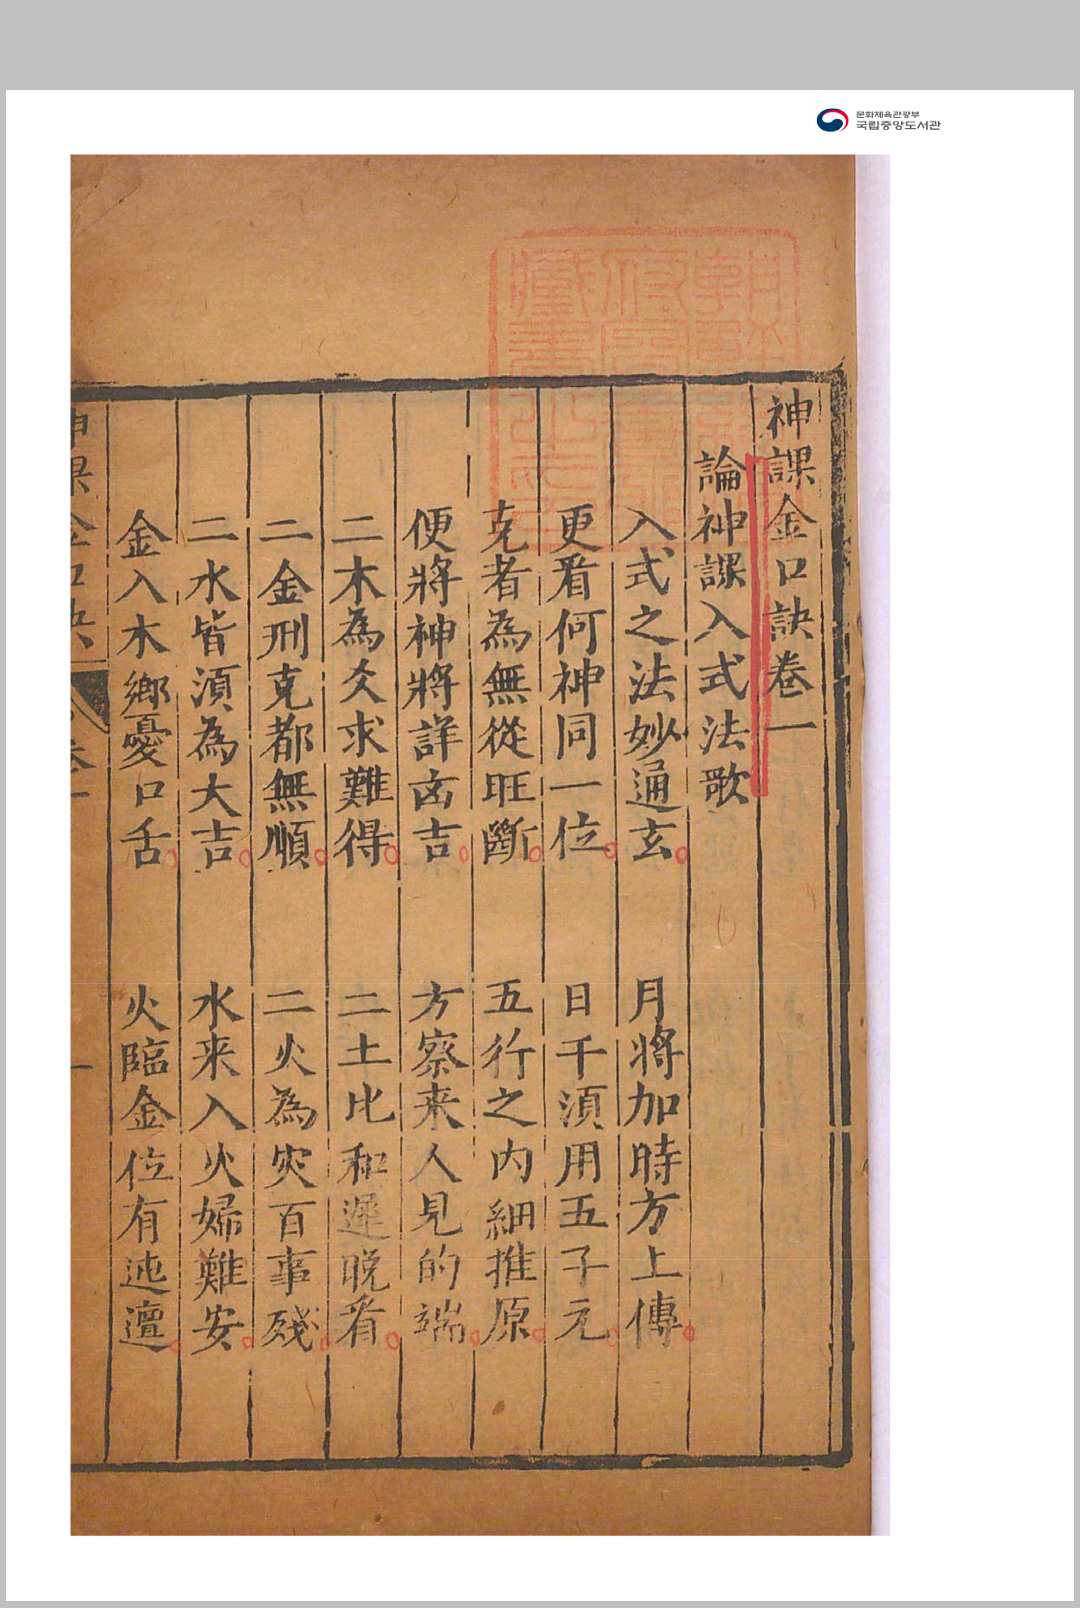 문화체육관광부
국립중앙도서관
神課金口訣卷一
論神課入式法歌
入式之法妙通玄 月將加時方上傳
更看何神同一位 日干須用五子元
克者為無從旺斷 五行之内細推原
便將神將詳凶吉 方察来人見的端
二木為爻求難得 二土比和遲晚看
二金刑克都無順 二火為灾百事殘
二水皆須為大吉 水来入火婦難安
金入木鄉憂口舌 火臨金位有迍邅
神課金口訣 卷一 一